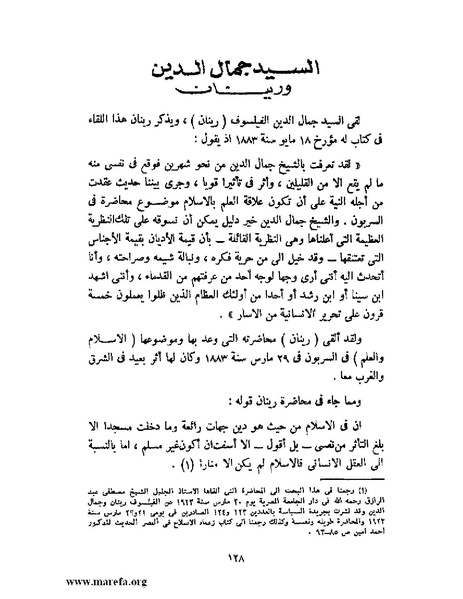 السيد جمال الدين
ورينان
لقى السيد جمال الدين الفيلسوف ( رينان ) ، ويذكر رينان هذا اللقاء
فى كتاب له مؤرخ ١٨ مايو سنة ١٨٨٣ اذ يقول :
« لقد تعرفت بالشيخ جمال الدين من نحو شهرين فوقع فى نفسى منه
ما لم يقع الا من القليلين ، وأثر فى تأثيرا قويا ، وجرى بيننا حديث عقدت
من أجله النية على أن تكون علاقة العلم بالاسلام موضوع محاضرة فى
السربون . والشيخ جمال الدين خير دليل يمكن أن نسوقه على تلك النظرية
العظيمة التى أعلناها وهى النظرية القائلة ــ بأن قيمة الأديان بقيمة الأجناس
التى تعتنقها ــ وقد خيل الى من حرية فكره ، ونبالة شيمه وصراحته ، وأنا
أتحدث اليه أننى أرى وجها لوجه أحد من عرفتهم من القدماء ، وأننى اشهد
ابن سينا أو ابن رشد أو أحدا من أولئك العظام الذين ظلوا يعملون خمسة
قرون على تحرير الانسانية من الاسار » .
ولقد ألقى ( رينان ) محاضرته التى وعد بها وموضوعها ( الاسلام
والعلم ) فى السربون فى ٢٩ مارس سنة ١٨٨٣ وكان لها أثر بعيد فى الشرق
والغرب معا .
ومما جاء فى محاضرة رينان قوله :
ان فى الاسلام من حيث هو دين جهات رائعة وما دخلت مسجدا الا
بلغ التأثر من نفسى ــ بل أقول ــ الا أسفت ان أكون غير مسلم ، اما بالنسبة
الى العقل الانسانى فالاسلام لم يكن الا ضارا (١) .
(١) رجعنا فى هذا البحث الى المحاضرة التى القاها الاستاذ الجليل الشيخ مصطفى عبد
الرازق رحمه الله فى دار الجامعة المصرية يوم ٢٠ مارس سنة ١٩٢٣ عن الفيلسوف رينان وجمال
الدين وقد نشرت بجريدة السياسة بالعددين ١٢٣ و١٢٤ الصادرين فى يومى ٢١ و٢٢ مارس سنة
١٩٢٣ والمحاضرة طويلة ونفيسة وكذلك رجعنا الى كتاب زعماء الاصلاح فى العصر الحديث للدكتور
أحمد أمين ص ٨٥ــ٩٣ .
١٢٨
www.marefa.org